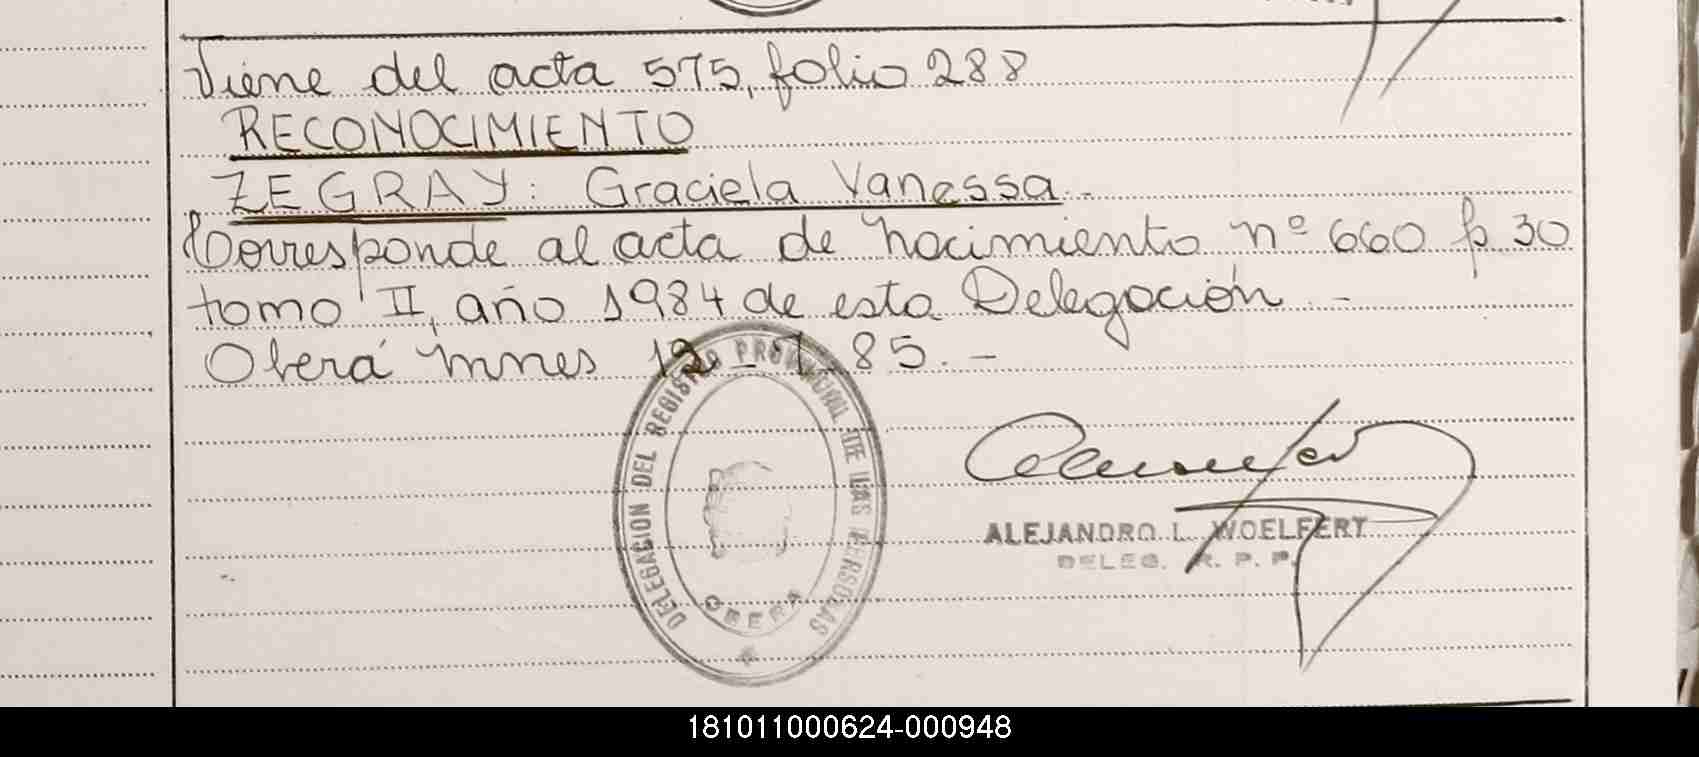 Viene del acta 575, folio 288
RECONOCIMIENTO
ZEGRAY: Graciela Vanessa.-
Corresponde al acta de nacimiento nº 660 fº 30
tomo II, año 1984 de esta Delegación.-
Oberá Mnes 12-7-85.-
DELEGACION DEL REGISTRO PROVINCIAL DE LAS PERSONAS
OBERA
ALEJANDRO L. WOELFERT
DELEG. R. P. P.
181011000624-000948